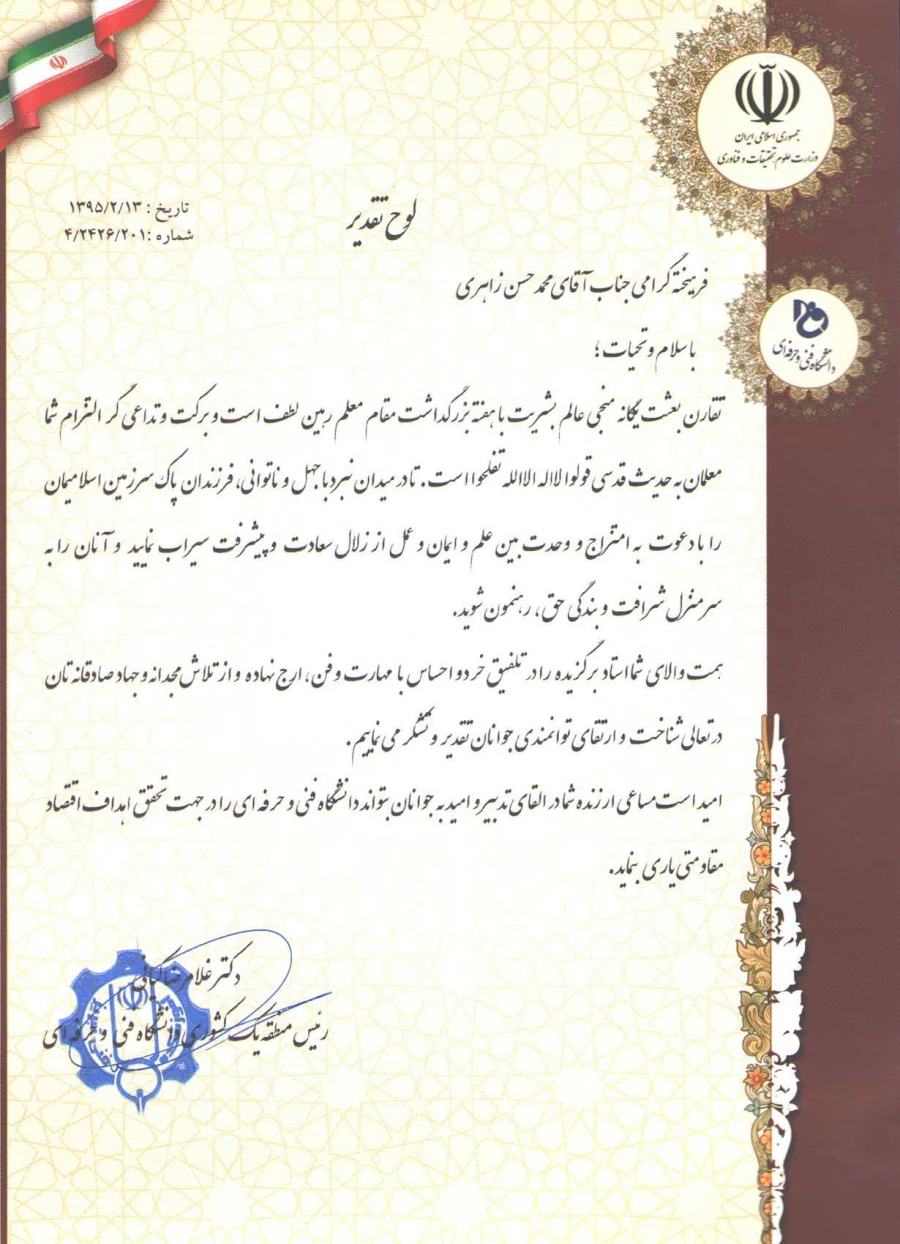 جمهوری اسلامی ایران
وزارت علوم تحقیقات و فناوری
تاریخ : ۱۳۹۵/۲/۱۳
شماره :۴/۲۴۲۶/۲۰۱
لوح تقدیر
فرهیخته گرامی جناب آقای محمد حسن زاهری
دانشگاه فنی و حرفه ای
با سلام و تحیات ؛
تقارن بعثت یگانه منجی عالم بشریت با هفته بزرگداشت مقام معلم رهین لطف است و برکت و تداعی گر التزام شما
معلمان به حدیث قدسی قولوا لا اله الا الله تفلحوا است. تا در میدان نبرد با جهل و ناتوانی، فرزندان پاک سرزمین اسلامیمان
را با دعوت به امتزاج و وحدت بین علم و ایمان و عمل از زلال سعادت و پیشرفت سیراب نمایید و آنان را به
سر منزل شرافت و بندگی حق، رهنمون شوید.
همت والای شما استاد برگزیده را در تلفیق خرد و احساس با مهارت و فن، ارج نهاده و از تلاش مجدانه و جهاد صادقانه تان
در تعالی شناخت و ارتقای توانمندی جوانان تقدیر و تشکر می نماییم.
امید است مساعی ارزنده شما در القای تدبیر و امید به جوانان بتواند دانشگاه فنی و حرفه ای را در جهت تحقق اهداف اقتصاد
مقاومتی یاری بنماید.
دکتر غلامرضا کیانی
رئیس منطقه یک کشوری دانشگاه فنی و حرفه ای